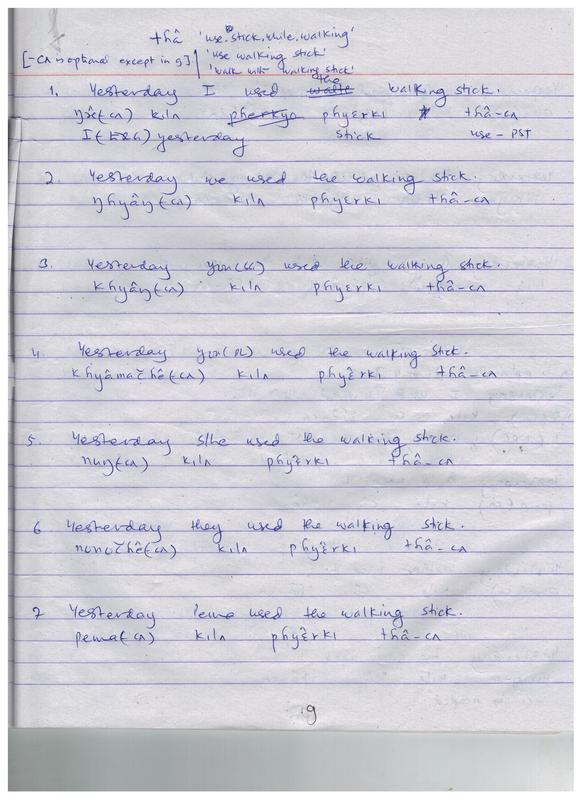 thâ 'use.stick.while.walking'
'use walking stick'
[-cʌ is optional except in 9] 'walk with walking stick'
1. Yesterday I used the walking stick.
ŋɔ̂(cʌ) kilʌ phyɛrki thâ-cʌ
I(ERG) yesterday stick use-PST
2. Yesterday we used the walking stick.
ŋhyâŋ(cʌ) kilʌ phyɛrki thâ-cʌ
3. Yesterday you(SG) used the walking stick.
khyâŋ(cʌ) kilʌ phyɛrki thâ-cʌ
4. Yesterday you(PL) used the walking stick.
khyâmac̆hê(cʌ) kilʌ phyɛ̂rki thâ-cʌ
5. Yesterday s/he used the walking stick.
nuŋ(cʌ) kilʌ phyɛ̂rki thâ-cʌ
6 Yesterday they used the walking stick.
nunuc̆hê(cʌ) kilʌ phyɛ̂rki thâ-cʌ
7 Yesterday Pema used the walking stick.
pema(cʌ) kilʌ phyɛ̂rki thâ-cʌ
9